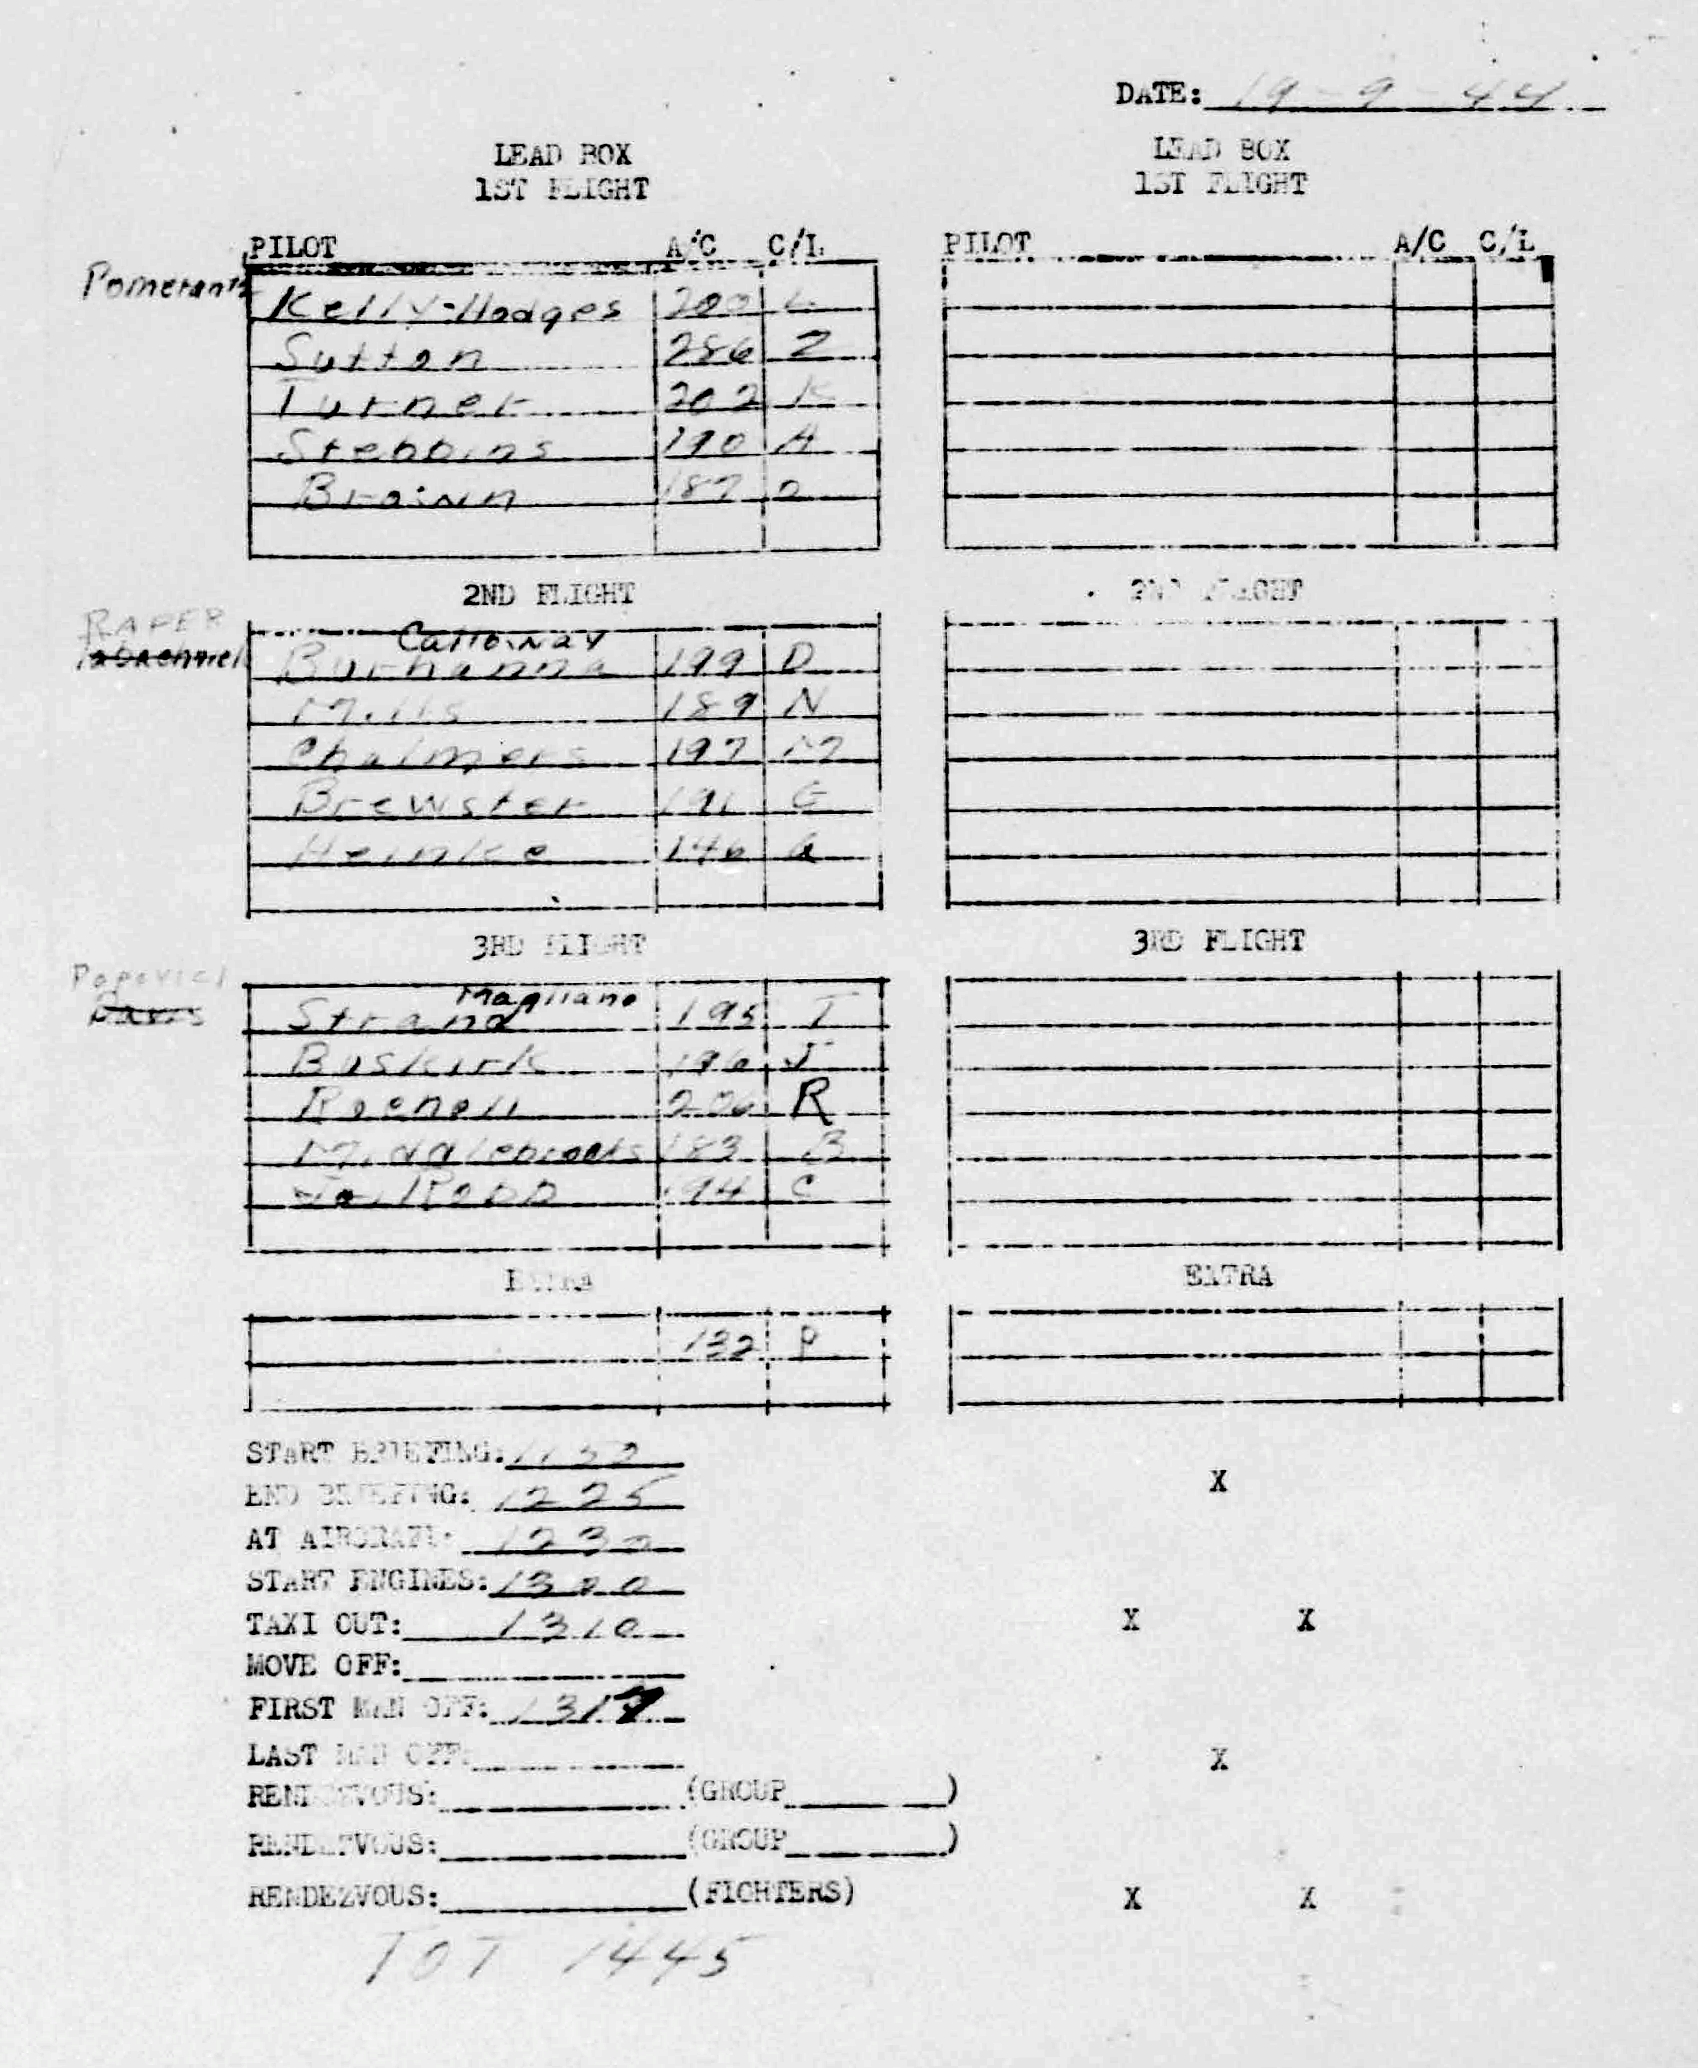 DATE: 19-9-44
LEAD BOX
1ST FLIGHT
PILOT A/C C/L
Pomerantz
Kelly-Hodges 200 L
Sutton 286 Z
Turner 202 K
Stebbins 190 A
Brown 187 O
2ND FLIGHT
RAFER
Calloway
Burhanna 199 D
Mills 189 N
Chalmers 197 M
Brewster 191 G
Heinke 146 Q
3RD FLIGHT
Popovici
Davis
Magliano
Strand 195 T
Buskirk 196 J
206 R
Middlebrooks 183 B
Robb 194 C
EXTRA
132 P
LEAD BOX
1ST FLIGHT
PILOT A/C C/L
2ND FLIGHT
3RD FLIGHT
EXTRA
START BRIEFING:
END BRIEFING: 1225
AT AIRCRAFT: 1230
START ENGINES: 1300
TAXI OUT: 1310
MOVE OFF:
FIRST MAN OFF: 1317
LAST MAN OFF:
RENDEZVOUS: (GROUP )
RENDEZVOUS: (GROUP )
RENDEZVOUS: (FIGHTERS)
TOT 1445
X
X X
X
X X